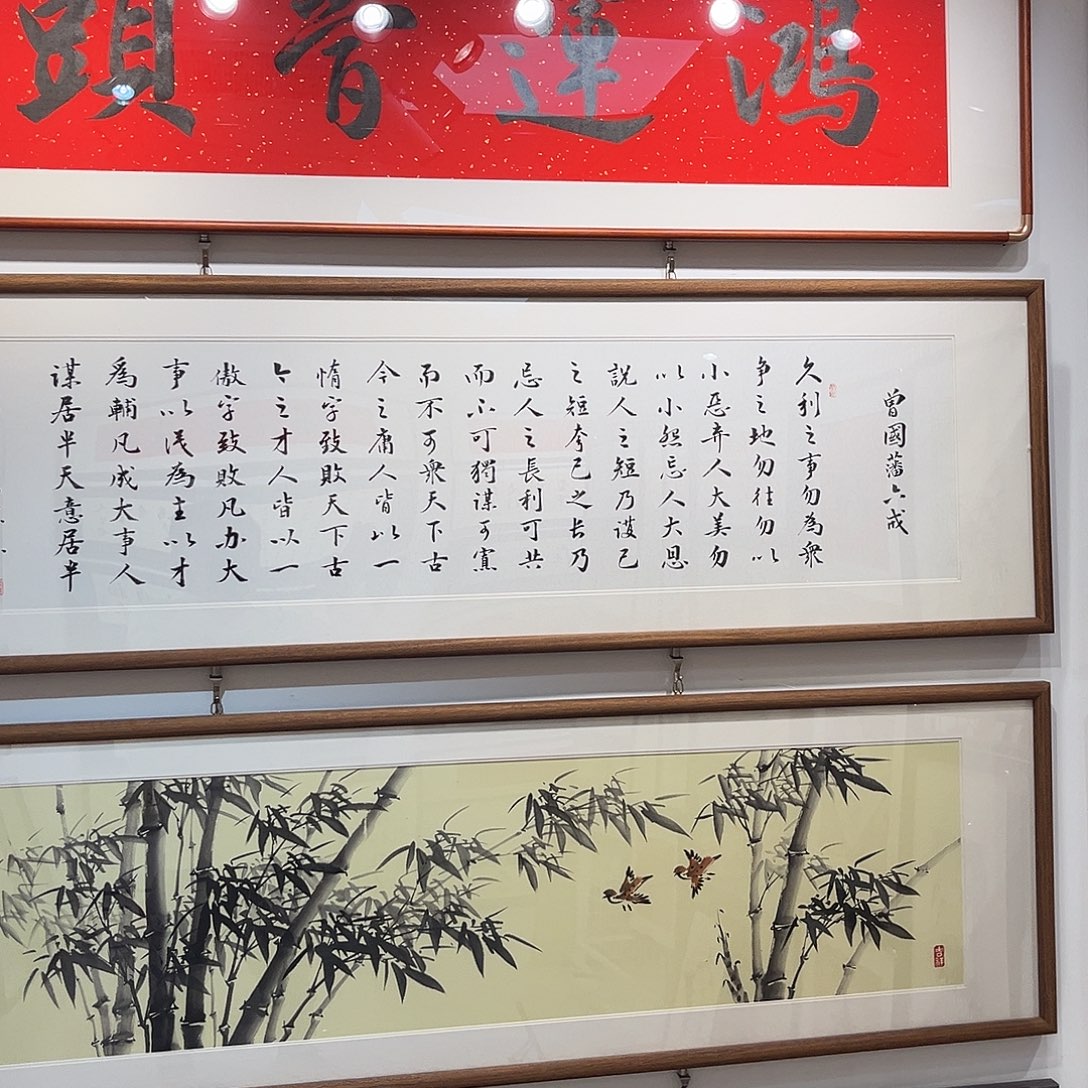 鴻運當頭
曾國藩六戒
久利之事勿為衆
争之地勿往勿以
小惡弃人大美勿
以小怨忘人大恩
説人之短乃護己
之短夸己之长乃
忌人之長利可共
而不可獨謀可寡
而不可衆天下古
今之庸人皆以一
惰字致敗天下古
今之才人皆以一
傲字致敗凡办大
事以识為主以才
為輔凡成大事人
謀居半天意居半
吉祥